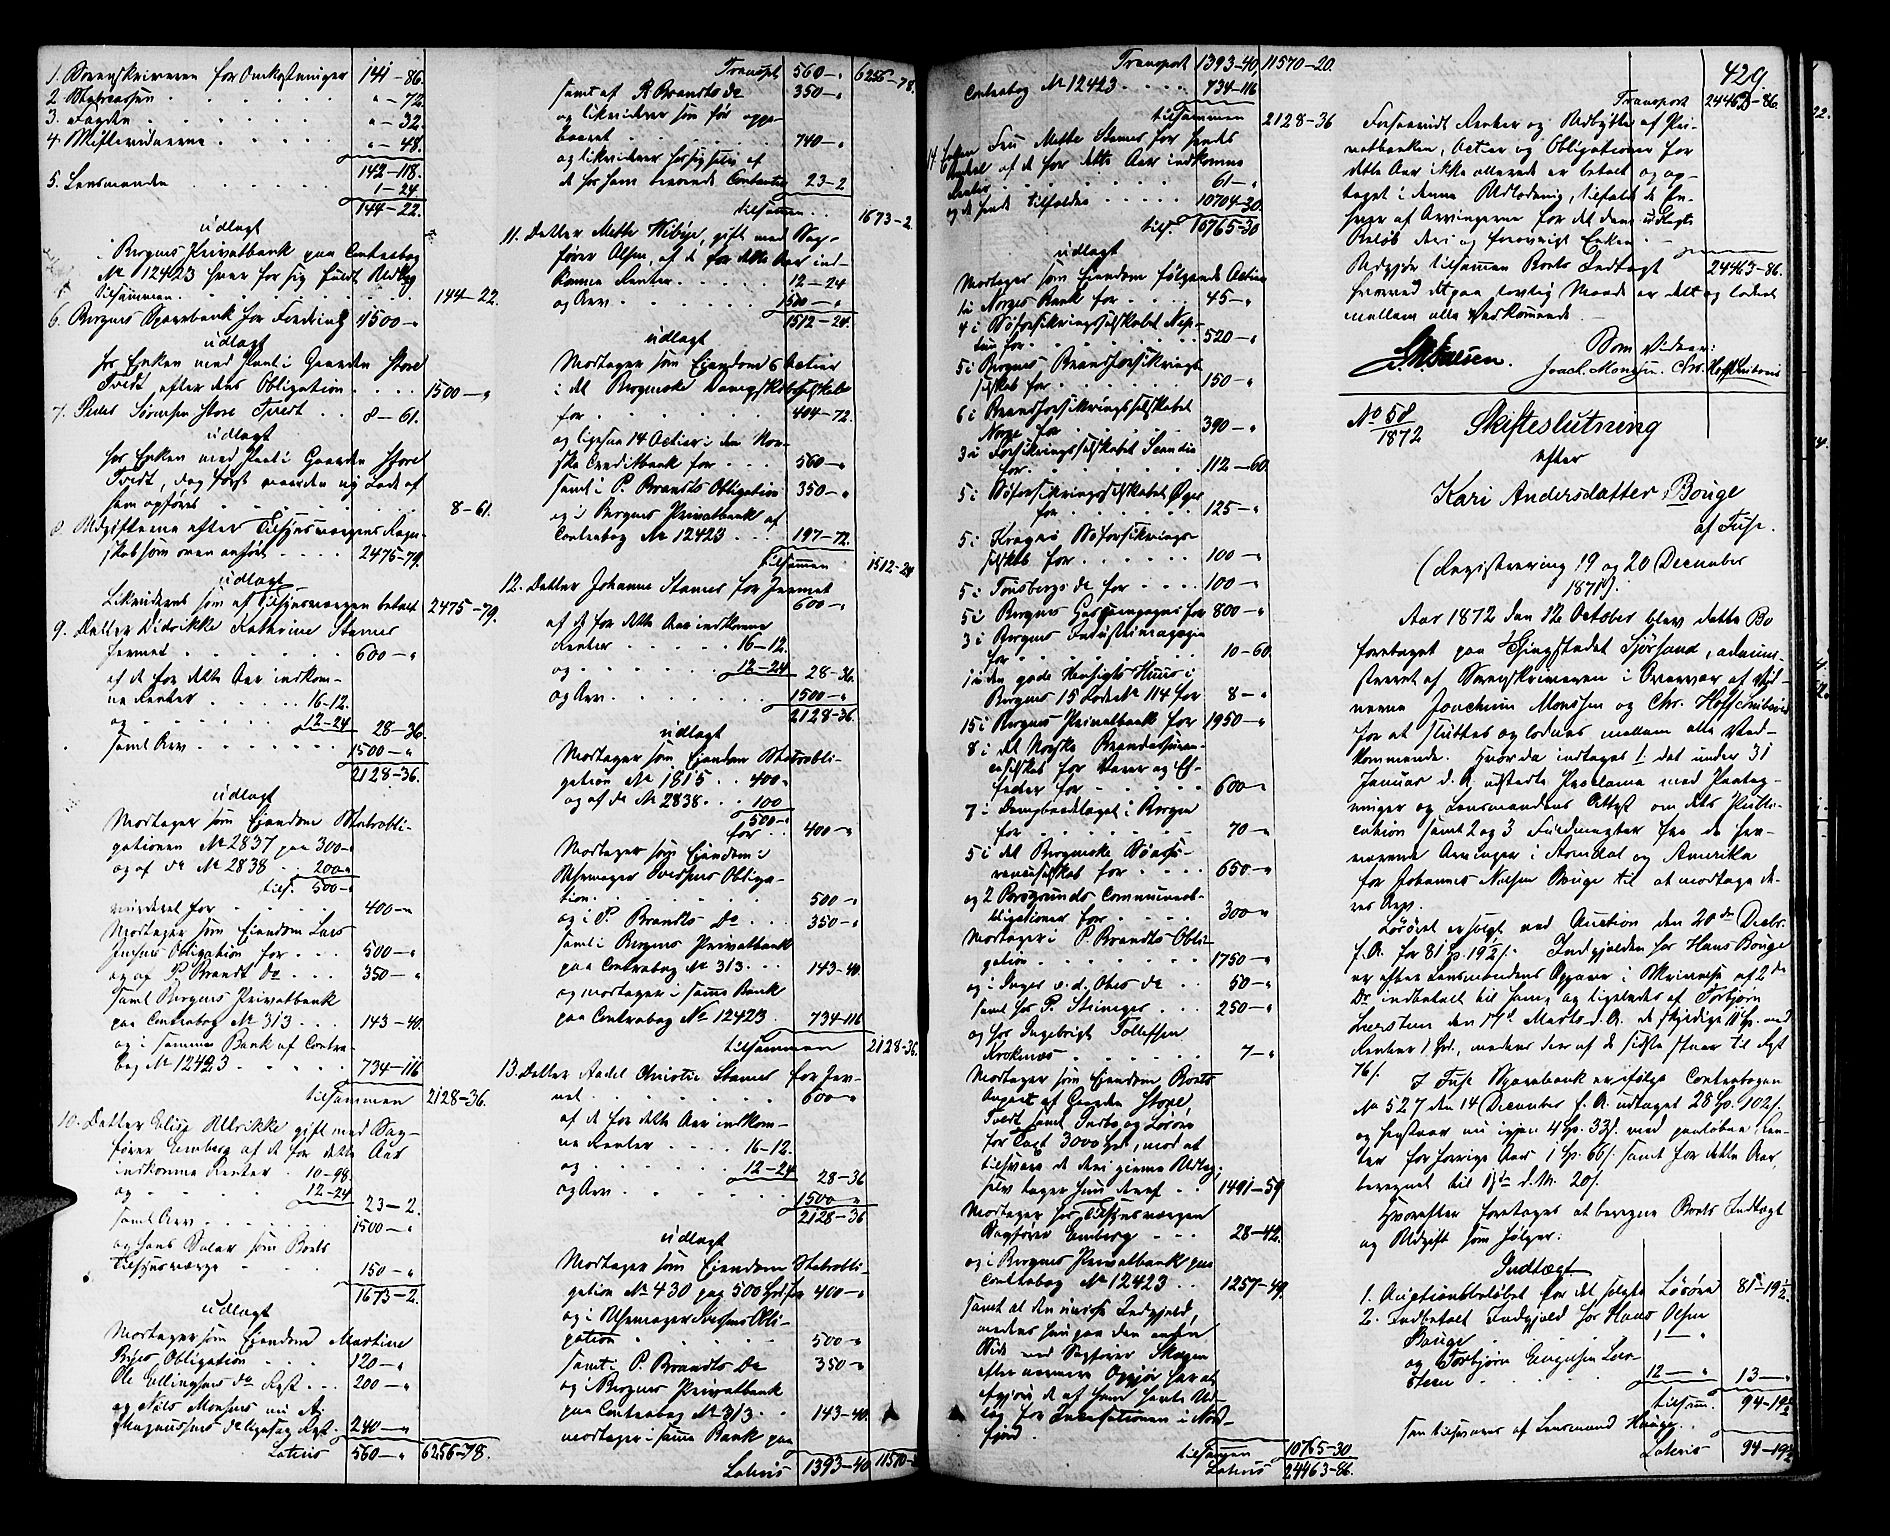 1. Sorenskriveren for Omkostninger 141-86.
2. Statscassen „-72.
3. Fogden „-32.
4. Mistervidnerne „-48.
142-118.
5. Lensmanden 1-24.
144-22.
udlagt
i Bergens Privatbank paa Contrabog
No 12423 hver for sig fuldt Udlæg
tilsammen 144-22.
6. Bergens Sparebank for Fordring 1500-„
udlagt
hos Enken med Pant i Gaarden Store
Tvedt efter dens Obligation 1500-„
7. Peder Sørensen Store Tvedt 8-61.
udlagt
hos Enken med Pant i Gaarden Store
Tvedt, dog først naar den og Lode af
ham opføres 8-61.
8. Udgifterne efter Tilsynsværgens Regn-
skab som oven anført 2475-79.
udlagt
Likvideres som af Tilsynsværgen betalt 2475-79.
9. Datter Didrikke Kathrine Stamer
Hermet 600-„
af de for dette Aar indkom-
ne Renter 16-12.
og 12-24 28-36.
samt Arv 1500-„
2128-36.
udlagt
Modtager som Eiendom Statsobli-
gationen No 2837 paa 300-„
og af do No 2838 200-„
tils. 500-„
vurderet for 400-„
Modtager som Eiendom Lars
Jensens Obligation for 500-„
og af P. Brandt Do 350-„
samt Bergens Privatbank
paa Contrabog No 313 143-40.
og i samme Bank af Contra-
bog No 12423 734-116
tilsammen 2128-36.
10. Datter Elise Ulrikke gift med Sag-
fører Emberg af de for dette Aar
indkomne Renter 10-98
og 12-24 23-2.
samt Arv 1500-„
og hans Salær som Boets
Tilsynsværge 150-„
1673-2.
udlagt
Modtager som Eiendom Martine
Byes Obligation 120-„
Ole Ellingsens do Rest 200-„
og Niels Monsens nu A.
Magnussens do ligesaa Rest 240-„
Lateris 560-„ 6256-78.
Transpt 560-„ 6256-78.
samt af P. Brandts Do 350-„
og likviderer som før oppe-
baaret 740-„
og likviderer hos sig selv af
de hos ham beroende Contanter 23-2
tilsammen 1673-2.
11. Datter Mette Wibye, gift med Sag-
fører Olsen, af de for dette Aar ind-
komne Renter 12-24
og Arv 1500-„
1512-24.
udlagt
Modtager som Eiendom 6 Actier
i det Bergenske Dampskibsselskab
for 404-72.
og ligesaa 14 Actier i den Nor-
ske Creditbank for 560-„
samt i P. Brandts Obligation 350-„
og i Bergens Privatbank af
Contrabog No 12423 197-72.
tilsammen 1512-24
12. Datter Johanne Stamer for Jermet
600-„
af de for dette Aar indkomne
Renter 16-12.
og 12-24 28-36.
og Arv 1500-„
2128-36.
udlagt
Modtager som Eiendom Statsobli-
gation No 1815 400-„
og af do No 2838 100
500-„
for 400-„
Modtager som Eiendom i
Uhrmager Iversens Obliga-
tion 500-„
og i P. Brandts Do 350-„
samt i Bergens Privatbank
paa Contrabog No 313 143-40.
og modtager i samme Bank
paa Contrabog No 12423 734-116
tilsammen 2128-36.
13. Datter Aadel Christie Stamer for Jer-
met 600-„
af de for dette Aar indkom-
ne Renter 16-12.
og 12-24 28-36
og Arv 1500-„
2128-36
udlagt
Modtager som Eiendom Statsobli-
gation No 430 paa 500 Spd for 400-„
og i Uhrmager Iversens Obli-
gation 500-„
samt i P. Brandts Do 350-„
og i Bergens Privatbank
paa Contrabog No 313 143-40.
modtager i samme Bank paa
Lateris 1393-40 11570-20
Transport 1393-40, 11570-20.
Contrabog No 12423 734-116
tilsammen 2128-36
14. Enken Fru Mette Stamer for hendes
Andel af de for dette Aar indkomne
Renter 61-„
og de hende tilfaldne 10704-30
tils. 10765-30
udlagt
Modtager som Eiendom følgende Actier
1 i Norges Bank for 45-„
4 i Søforsikringsselskabet Nep-
tun for 520-„
5 i Bergens Brandforsikrings-
selskab for 150-„
6 i Brandforsikringsselskabet
Norge for 390-„
3 i Forsikringsselskabet Scandia
for 112-60.
5 i Søforsikringsselskabet Øger
for 125-„
5 i Kragerø Søforsikrings-
selskab for 100-„
5 i Tønsbergs do for 100-„
5 i Bergens Gascompagnie for 800-„
3 i Bergens Industrimagazin
for 10-60.
1 i den gode Hensigts Huus i
Bergens 15 Rode No 114 for 8-„
15 i Bergens Privatbank for 1950-„
8 i det Norske Brandassuran-
ceselskab for Varer og Ef-
fecter for 600-„
7 i Dampbadlaget i Bergen
for 70-„
5 i det Bergenske Søassu-
ranceselskab for 650-„
og 2 Porsgrunds Communeob-
ligationer for 300-„
Modtager i P. Brandts Obli-
gation 1750-„
og i Inger v. d. Ohes do 50-„
samt hos P. Steineger 250-„
og hos Ingebrigt Tollefsen
Kroknæs 7-„
Modtager som Eiendom Boets
Anpart af Gaarden Store
Tvedt samt Indbo og Løsøre
for Taxt 3000 Spd, mod at
tilsvare de deri givne Udlæg;
selv tager hun deraf 1491-59
Modtager hos Tilsynsværgen
Sagfører Emberg 28-42.
og i Bergens Privatbank paa
Contrabog No 12423 1257-49.
samt al den uvisse Indgjæld,
medens hun paa den anden
Side med Sagfører Skagen
efter nærmere Opgjør har at
afgjøre de af ham hendte Ud-
læg for Inkassationen i Nord-
fjord.
tilsammen 10765-30
Lateris 24463-86.
429.
Transport 24463-86.
Forsaavidt Renter og Udbytte af Pri-
vatbanken, Actier og Obligationer for
dette Aar ikke allerede er betalt og op-
taget i denne Udlodning, tilfalde de En-
hver af Arvingerne for det dem udlagte
Beløb deri og forøvrigt Enken.
Udgjør tilsammen Boets Indtægt 24463-86.
hvormed det paa lovlig Maade er delt og lodnet
mellem alle Vedkommende.
Som Vidner:
Joach. Monssen. Chr. Hoff Suitovius
No 58/1872 Skifteslutning
efter
Kari Andersdatter Bouge
af Fuse.
(Registrering 19 og 20 December
1871).
Aar 1872 den 12 October blev dette Bo
foretaget paa Thingstedet Sjørsand, admini-
streret af Sorenskriveren i Overvær af Vid-
nerne Joachim Monssen og Chr. Hoff Suitovius
for at sluttes og lodnes mellem alle Ved-
kommende. Hvor da indtages 1. det under 31
Januar d. A. udstedte Proclama med Paateg-
ninger og Lensmandens Attest om dets Publi-
cation samt 2 og 3 Fuldmagter fra de fra-
værende Arvinger i Arendal og Amerika
for Johannes Nilsen Bouge til at modtage de-
res Arv.
Løsøret er solgt ved Auction den 20de Decbr.
f. A. for 81 Sp. 19½ s. Indgjælden hos Hans Bouge
er efter Lensmandens Opgave i Skrivelse af 2de
Ds indbetalt til ham, og ligeledes af Torbjørn
Lersten den 17de Marts d. A. de skyldige 11 Sp. med
Renter 1 Spd., medens der af de sidste staar til Rest
76 s.
I Fuse Sparebank er ifølge Contrabogen
No 527 den 14 December f. A. udtaget 28 Sp. 102 s.
og henstaar nu igjen 4 Sp. 33 s. med paaløbne Ren-
ter for forrige Aar 1 Sp. 66 s. samt for dette Aar,
beregnet til 1ste d. M. 20 s.
Hvorefter foretages at beregne Boets Indtægt
og Udgift som følger:
Indtægt
1. Auctionsbeløbet for det solgte Løsøre 81-19½.
2. Indbetalt Indgjæld hos Hans Olsen
Bouge 1-„
og Torbjørn Engelsen Lær-
steen 12-„ 13-„
tilsam. 94-19½
som tilsvares af Lensmand Hauge.
Lateris 94-19½